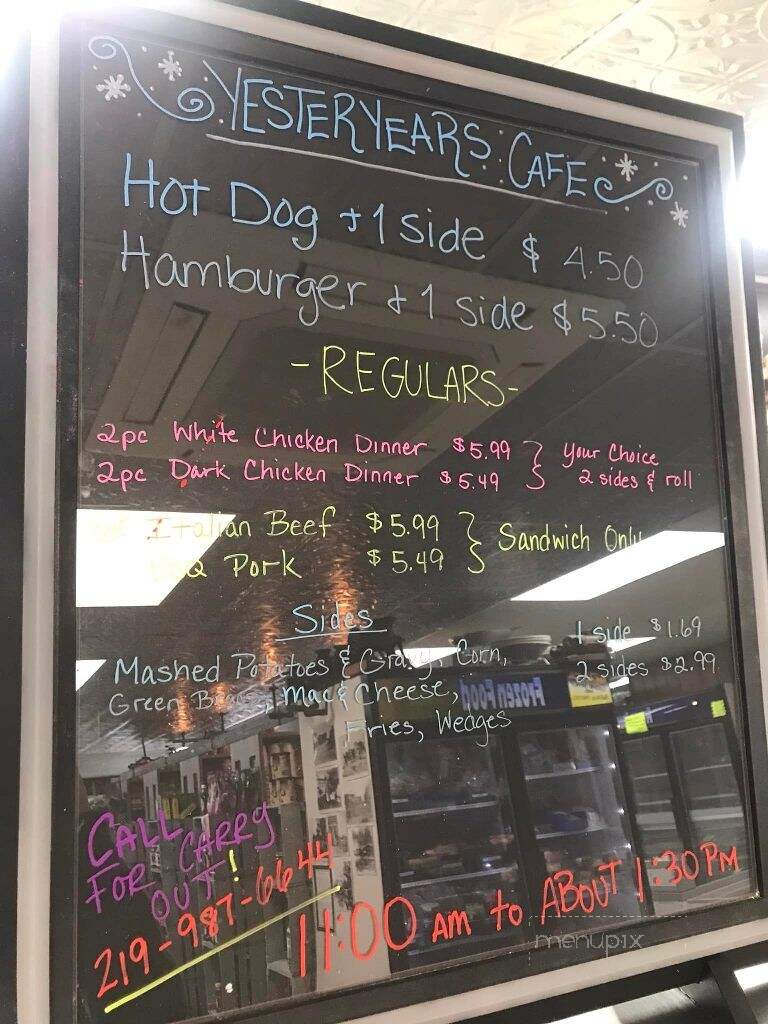 YESTERYEARS CAFE
Hot Dog + 1 side $ 4.50
Hamburger + 1 side $5.50
- REGULARS -
2pc White Chicken Dinner $5.99
2pc Dark Chicken Dinner $5.49
Your Choice
2 sides & roll
Italian Beef $5.99
Pork $5.49
Sandwich Only
Sides
Mashed Potatoes & Gravy, Corn,
Green Beans, Mac & Cheese,
Fries, Wedges
1 side $1.69
2 sides $2.99
Frozen Food
CALL
FOR CARRY
OUT!
219-987-6644
11:00 AM to ABOUT 1:30 PM
menupix